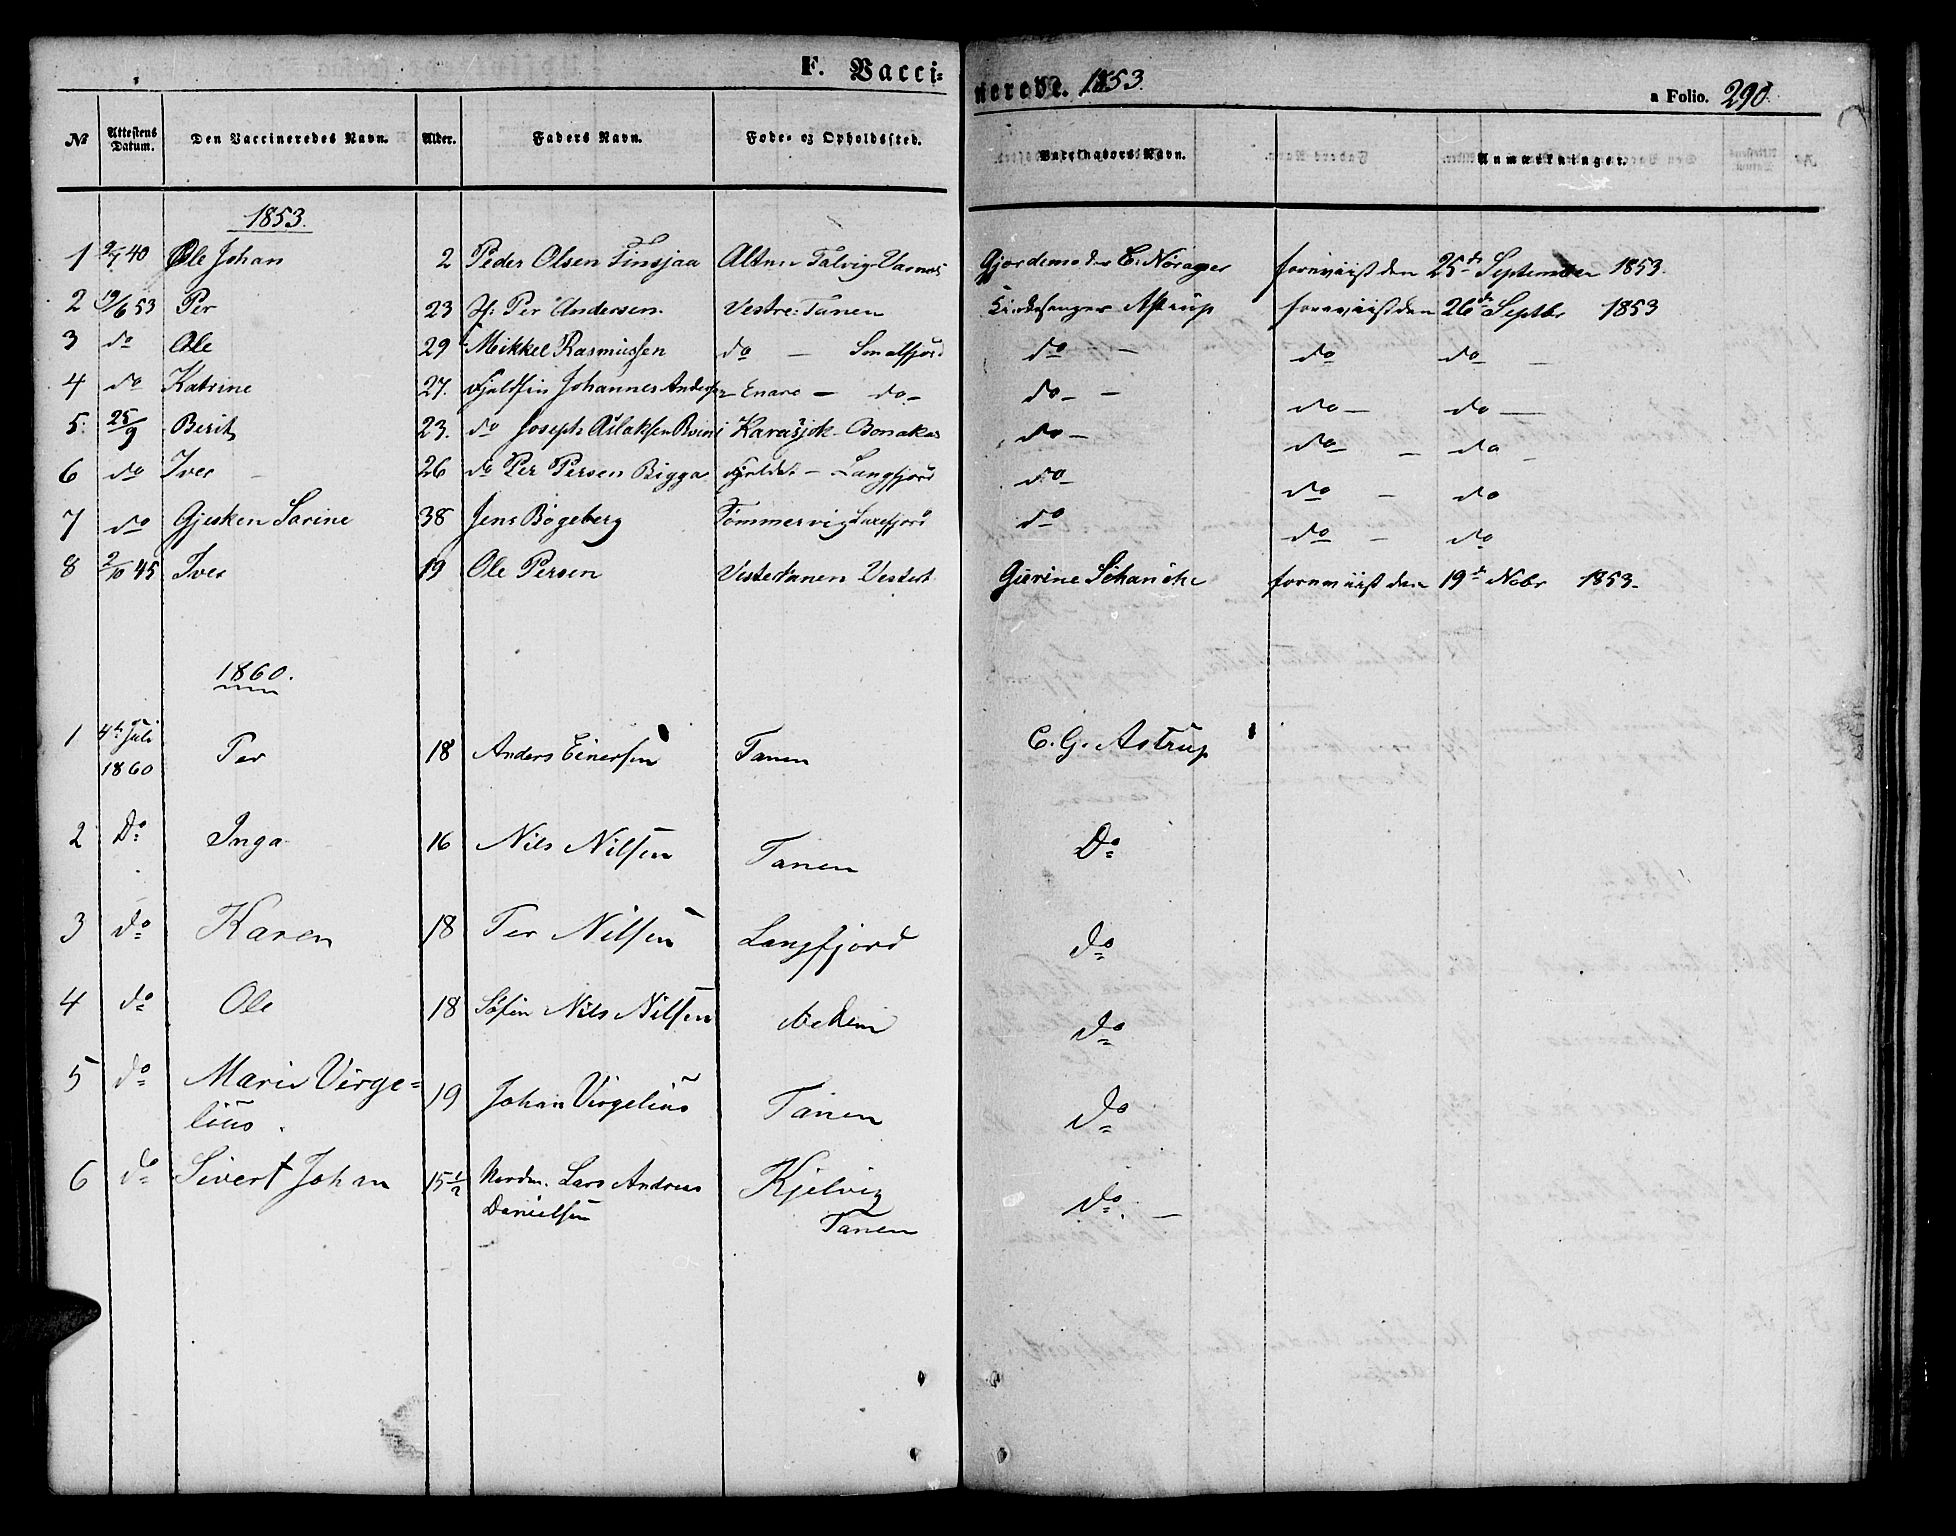 F. Vaccinerede. 1853. a Folio. 290.
№ Attestens Datum. Den Vaccineredes Navn. Alder. Faders Navn. Føde- og Opholdssted. Vaccinators Navn. Anmærkninger.
1853.
1 2/7 40 Ole Johan 2 Peder Olsen Finsjaa Alten Talvig Gjordemoder E. Nørager forevüst den 25de September 1853.
2 19/6 53 Per 23 Per Andersen. Vestre Tanen Kirkesanger Astrup forevüst den 26de Septbr 1853
3 do Ole 29 Mikkel Rasmussen do — Smalfjord do — do do
4 do Katrine 27. Fjeldfin Johannes Andersen Enare — do do — do — do
5. 25/9 Berit 23. do Joseph Aslaksen Karasjok - Bonakas do — do do
6 do Iver 26 do Per Persen Bigga Fjeldet — Langfjord do — do do
7 do Gjesken Sarine 38 Jens Bøgeberg Tømmervig Laxefjord do do do
8 2/10 45 Iver 19 Ole Persen Vestertanen Vestert. Gurine Schanche forevüst den 19de Nobr 1853.
1860.
1 4de Juli 1860 Per 18 Anders Einersen Tanen C. G. Astrup
2 Do Inga 16 Nils Nilsen Tanen Do
3 do Karen 18 Per Nilsen Langfjord do
4 do Ole 18 Søfin Nils Nilsen do
5 do Marie Virge= 19 Johan Virgelius Tanen do
lius.
6 do Sivert Johan 15½ Nordm. Lars Andreas Kjelvig do. —
Danielsen Tanen